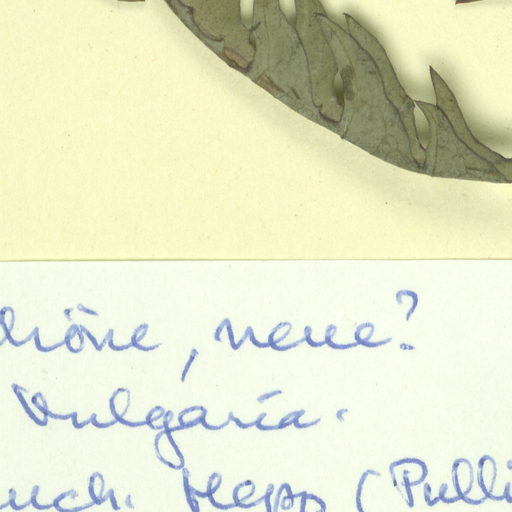 chöne, neue?
Vulgaria.
uch. Hepp (Pulli